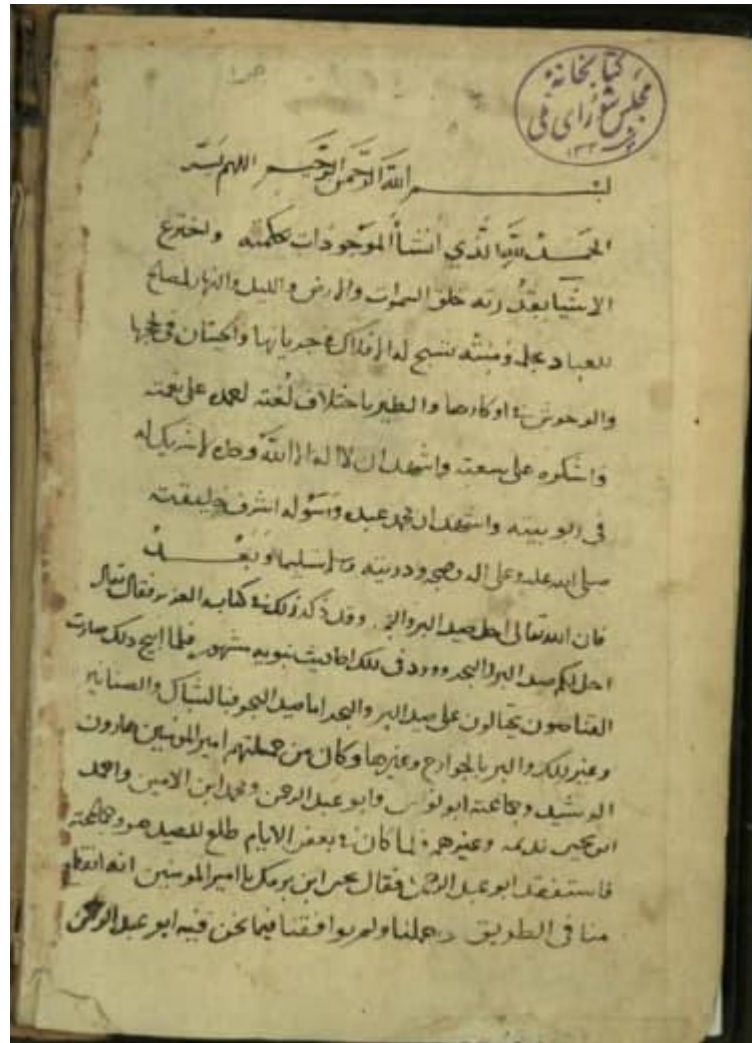 كتابخانهٔ
مجلس شورای ملی
۱۳۰۲
بسم الله الرحمن الرحيم اللهم يسر
الحمد لله الذي أنشأ الموجودات بحكمته واخترع
الاشيا بقدرته خلق السموات والارض والليل والنهار لمصالح
للعباد بجله ومنته تسبح له الافلاك في جريانها والحيتان في لججها
والوحوش في اوكارها والطير باختلاف لغته احمده على نعمته
واشكره على سعته واشهد ان لا اله الا الله وحده لا شريك له
في الوبيته واشهد ان محمد عبده ورسوله اشرف خليقته
صلى الله عليه وعلى اله وصحبه وذريته وسلم تسليما وبعد
فان الله تعالى احل صيد البر والبحر وقد ذكر ذلك في كتابه العزيز فقال تعالى
احل لكم صيد البر والبحر وورد في ذلك احاديث نبويه مشهوره فلما ابيح ذلك صارت
القناصون يحتالون على صيد البر والبحر اما صيد البحر فبالشباك والصنانير
وغير ذلك والبر بالجوارح وغيرها وكان من جملتهم امير المومنين هارون
الرشيد وجماعته ابو نواس وابو عبد الرحمن ومحمد ابن الامين واحمد
ابن يحيى نديمه وغيرهم ولما كان في بعض الايام طلع للصيد هو وجماعته
فاستفقد ابو عبد الرحمن فقال يحيى ابن برمك يا امير المومنين انه انقطع
منا في الطريق وجهلنا ولم يوافقنا فيما نحن فيه ابو عبد الرحمن